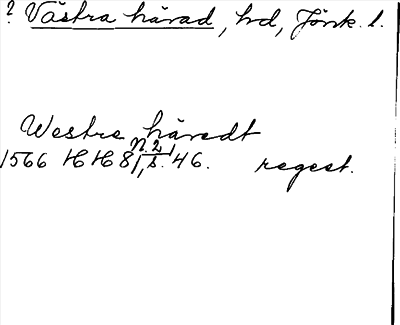 ? Västra härad, hd, Jönk. l.
Westra häredt
1566 HH 8 N. 2, s. 46. regest.